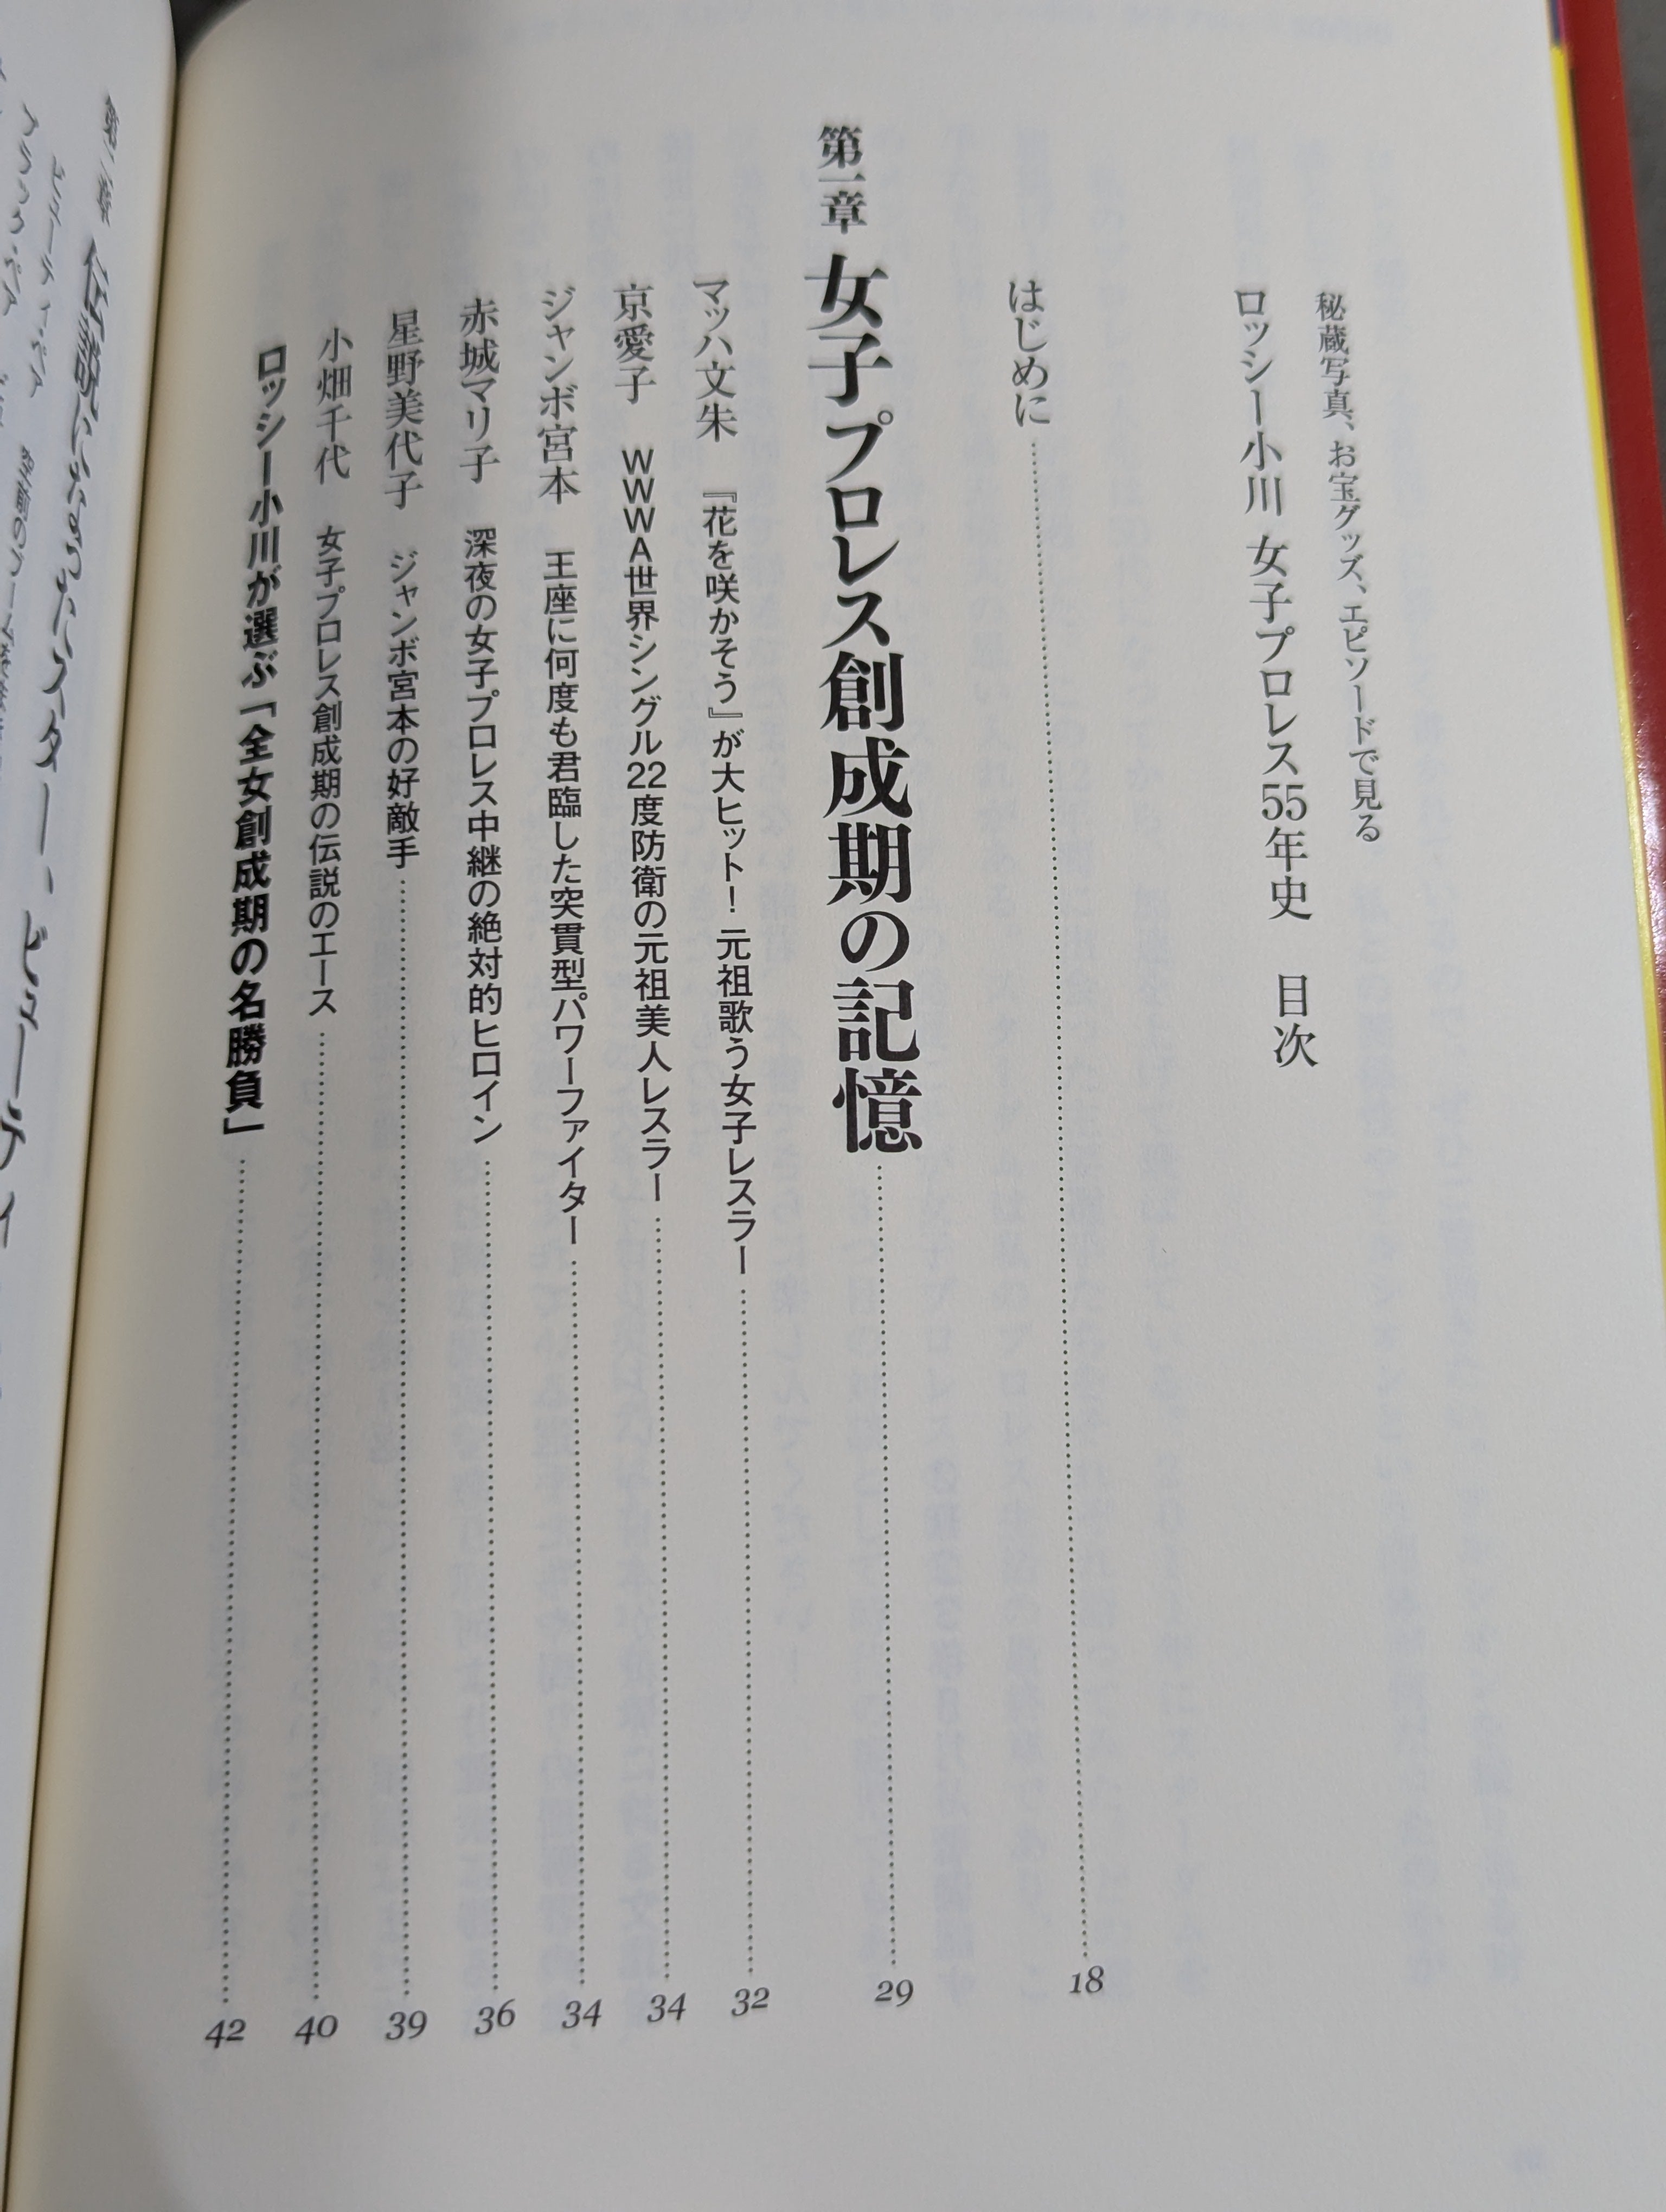 秘蔵写真、お宝グッズ、エピソードで見る
ロッシー小川 女子プロレス55年史　目次
はじめに 18
第一章 女子プロレス創成期の記憶 29
マッハ文朱 『花を咲かそう』が大ヒット！ 元祖歌う女子レスラー 32
京愛子 WWWA世界シングル22度防衛の元祖美人レスラー 34
ジャンボ宮本 王座に何度も君臨した突貫型パワーファイター 34
赤城マリ子 深夜の女子プロレス中継の絶対的ヒロイン 36
星野美代子 ジャンボ宮本の好敵手 39
小畑千代 女子プロレス創成期の伝説のエース 40
ロッシー小川が選ぶ「全女創成期の名勝負」 42
第二章
ビューティ・ペア
ブラック・ペア